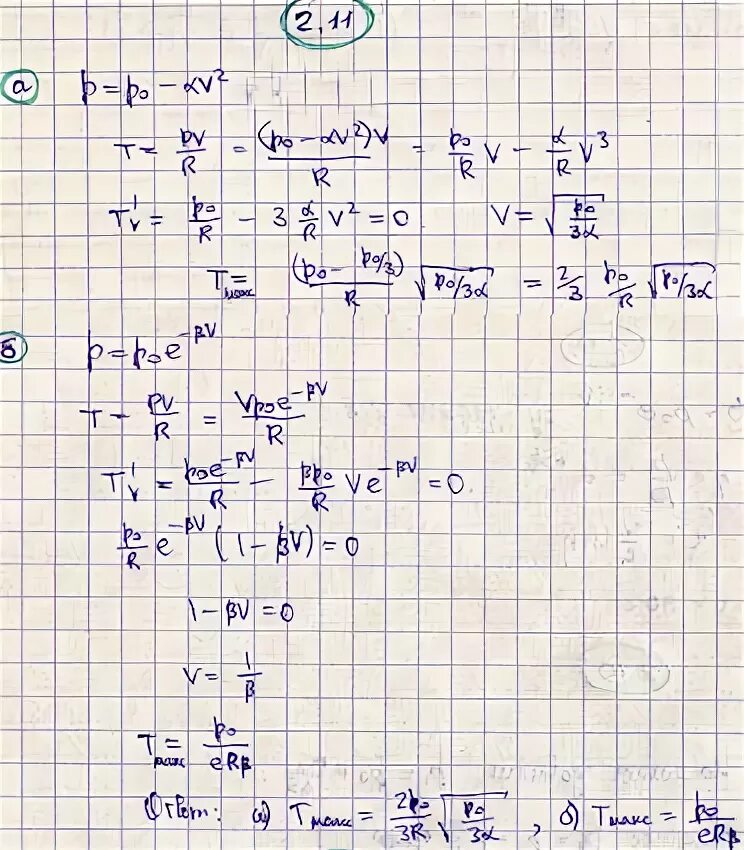 2.11
а) p = p₀ − αV²
T = pV/R = (p₀ − αV²)V/R = p₀/R V − α/R V³
T'ᵥ = p₀/R − 3 α/R V² = 0   V = √(p₀/3α)
Tмакс = (p₀ − p₀/3)/R √(p₀/3α) = 2/3 p₀/R √(p₀/3α)
б) p = p₀e^(−βV)
T − pV/R = Vp₀e^(−βV)/R
T'ᵥ = p₀e^(−βV)/R − βp₀/R Ve^(−βV) = 0
p₀/R e^(−βV) (1 − βV) = 0
1 − βV = 0
V = 1/β
Tмакс = p₀/eRβ
Ответ: а) Tмакс = 2p₀/3R √(p₀/3α), б) Tмакс = p₀/eRβ